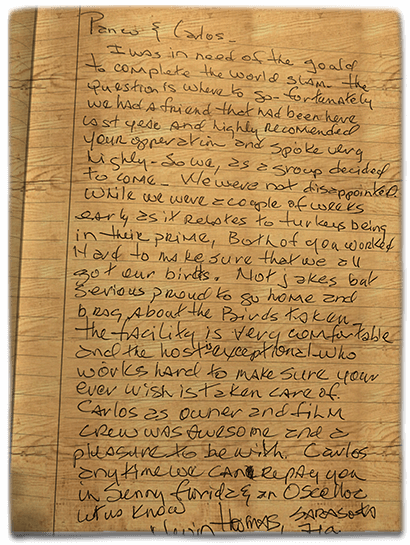 Panco & Carlos -
I was in need of the goald
to complete the world slam - the
question is where to go - fortunately
we had a friend that had been here
last year and highly recomended
your operation and spoke very
highly - So we, as a group decided
to come. We were not disappointed.
While we were a couple of weeks
early as it relates to turkeys being
in their prime, Both of you worked
Hard to make sure that we all
got our birds. Not jakes but
serious proud to go home and
brag about the Birds taken
the facility is very comfortable
and the host exceptional who
works hard to make sure your
ever wish is taken care of.
Carlos as owner and film
crew was awesome and a
pleasure to be with. Carlos
anytime we can repay you
in Sunny florida & an Oscelloe
let us know
Thomas, SARASOTA
Fla